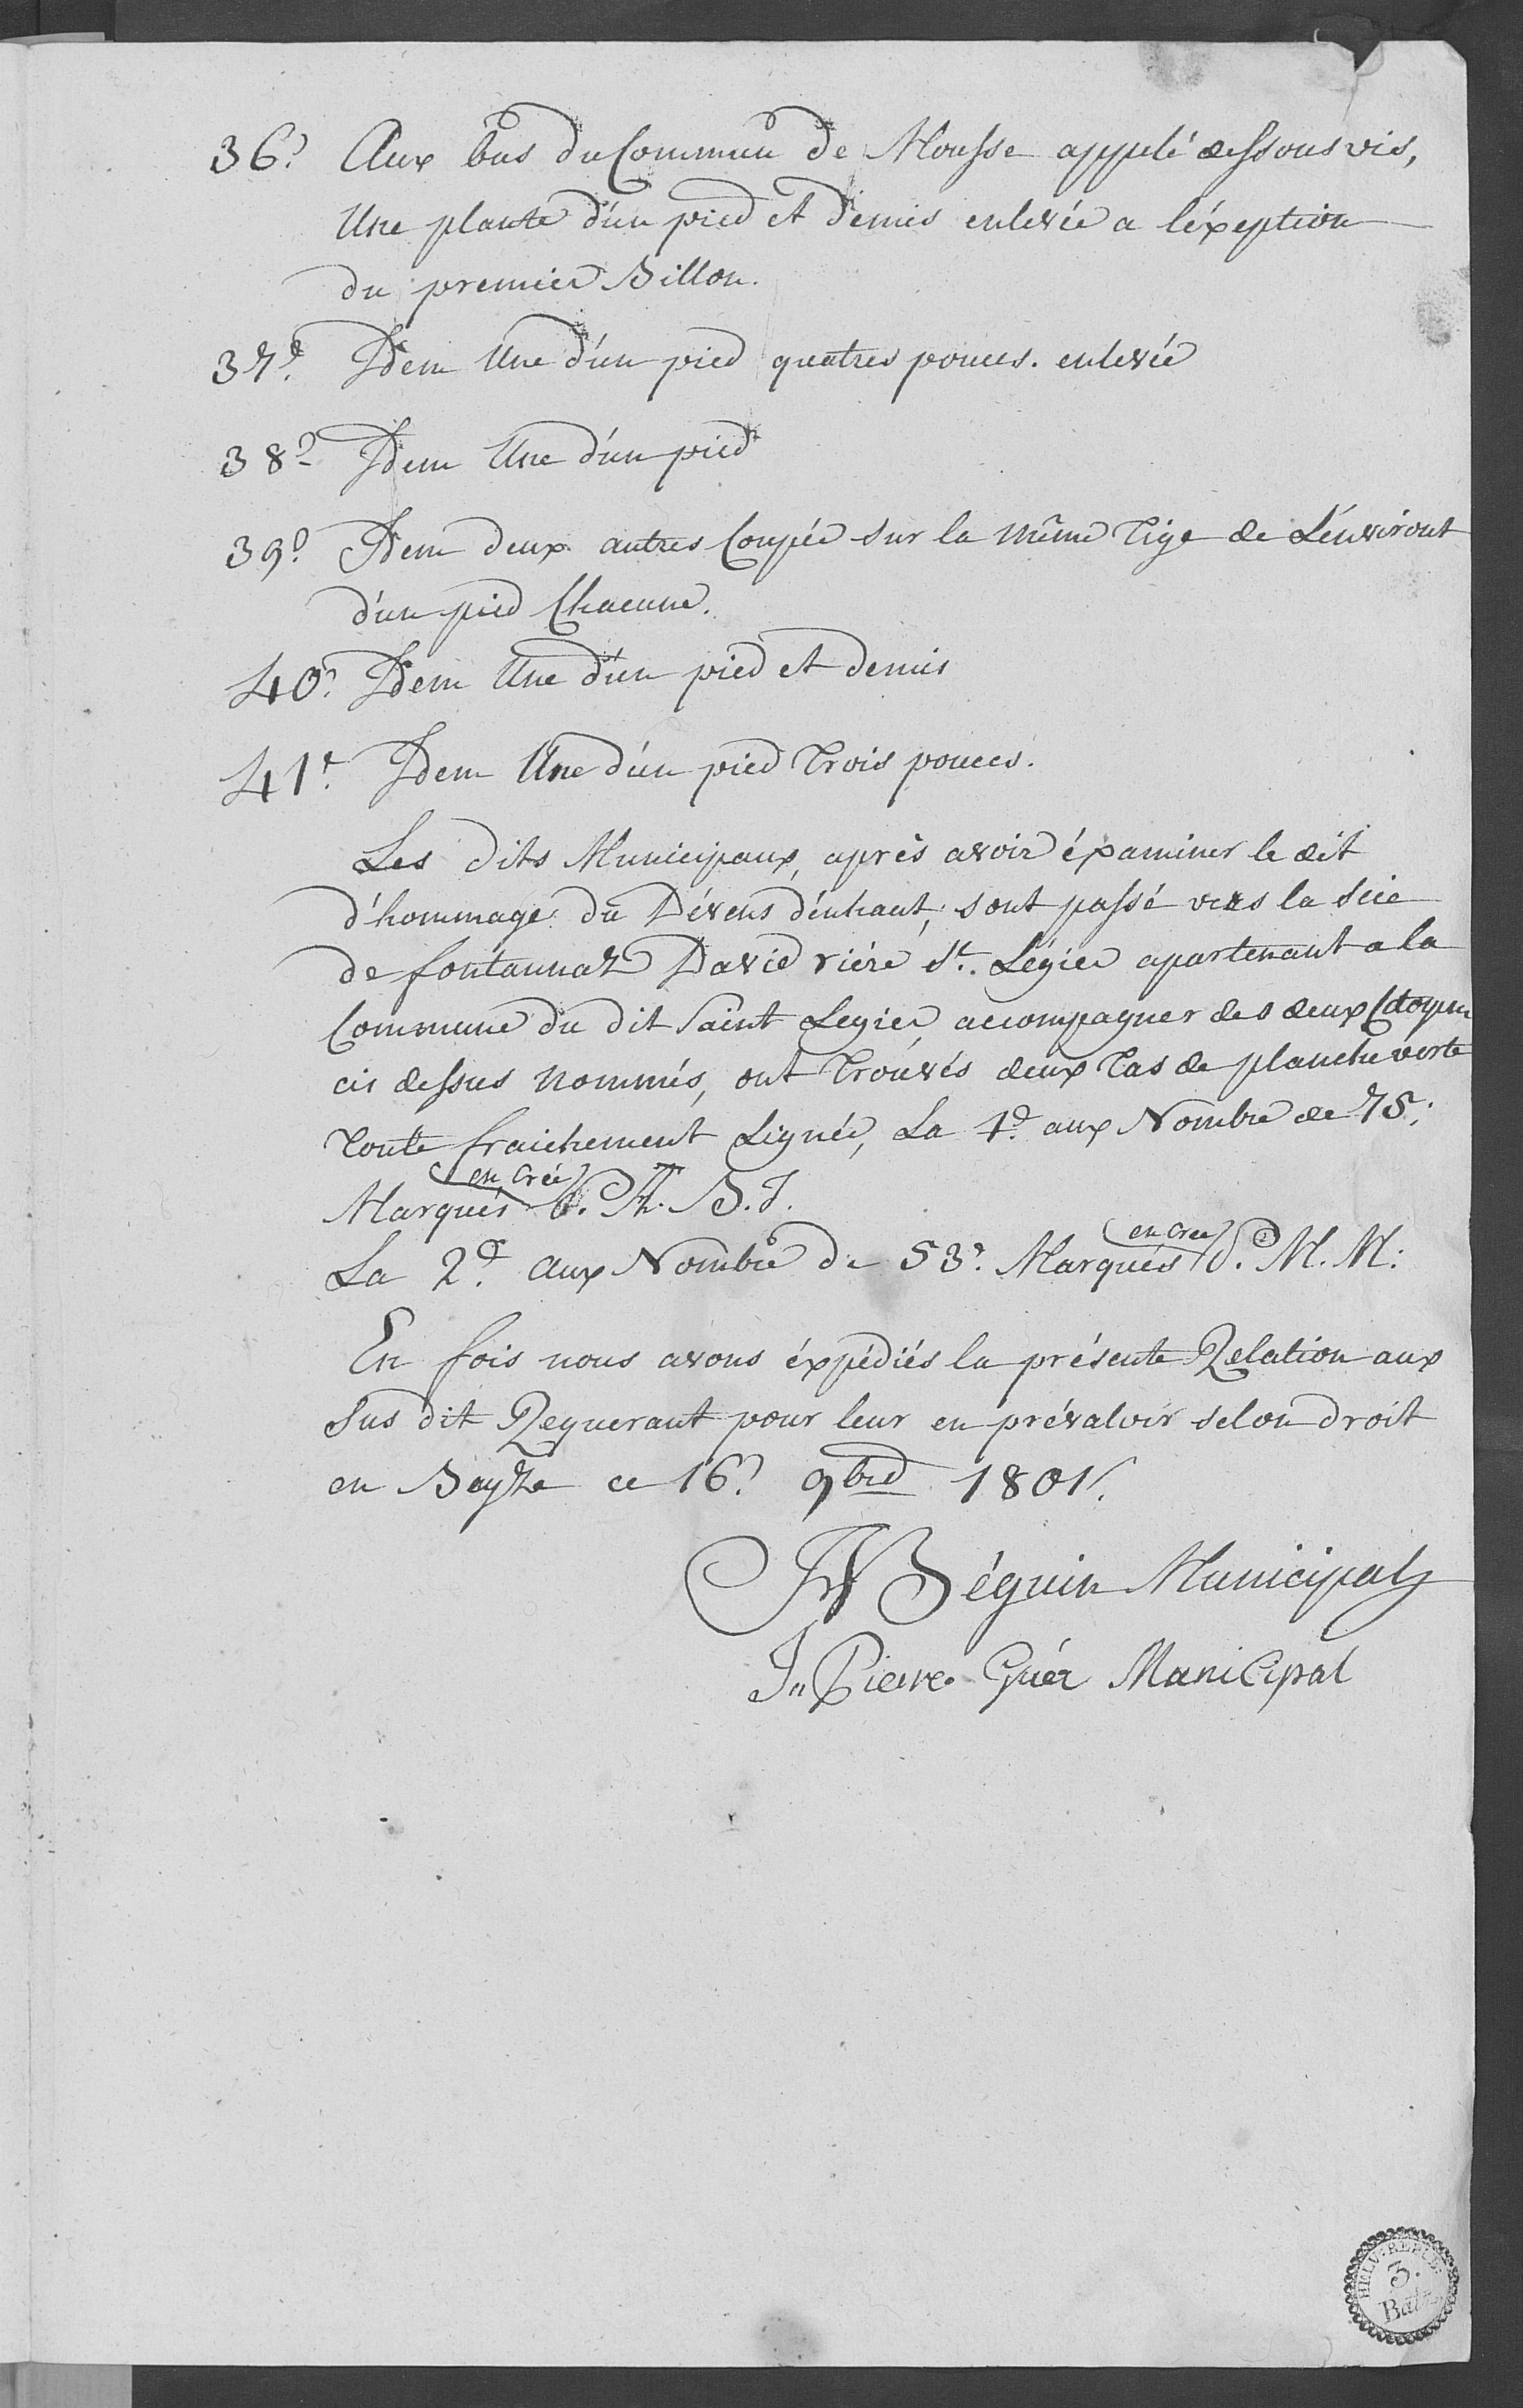 36.e Aux bas du Commun de Mousse appelé dessous vis,
Une plante d'un pied et demis enlevée a l'éxeption
du premier Billon.
37.e Idem Une d'un pied quatres pouces. enlevée
38.e Idem Une d'un pied
39.e Idem deux autres Coupée sur la même Tige de L'énviront
d'un pied Chacune.
40.e Idem Une d'un pied et demis
41.e Idem Une d'un pied Trois pouces.
Les dits Municipaux, après avoir éxaminer le dit
d'hommage du Dévens d'énhaut, sont passé vers la Scie
de fontannaz David riére St. Légier apartenant a la
Commune du dit Saint Legier, accompagner des deux Citoyen
cis dessus nommés, ont Trouvés deux Tas de planche verte
Toute fraichement Lignée, La 1.e aux Nombre de 75.
en Crée
Marqués B.I.
en Crée
La 2.e aux Nombre de 53.e Marqués M.M.
En fois nous avons éxpédiés la présente Relation aux
Sus dit Requerant pour leur en prévaloir selon droit
en ce 16.e 9bre 1801.
Béguin Municipal
Jn Pierre Municipal
HELV. REPUB.
3.
Batz